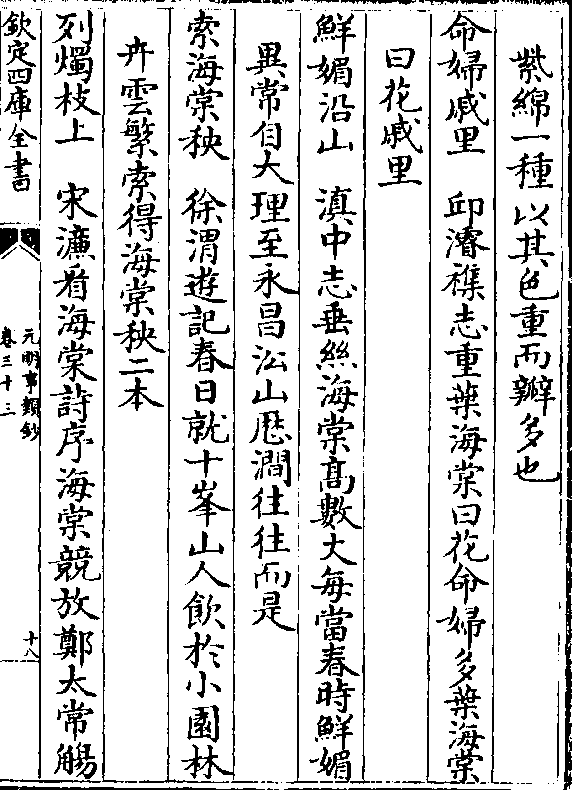 紫綿一種以其色重而瓣多也
命婦戚里　邱濬襍志重葉海棠曰花命婦多葉海棠
曰花戚里
鮮媚沿山　滇中志垂絲海棠髙數丈每當春時鮮媚
異常自大理至永昌沿山歷澗往往而是
索海棠秧　徐渭遊記春日就十峯山人飲於小園林
卉雲繁索得海棠秧二本
列燭枝上　宋濂看海棠詩序海棠競放鄭太常觴
欽定四庫全書
元明事類鈔
卷三十三
十八